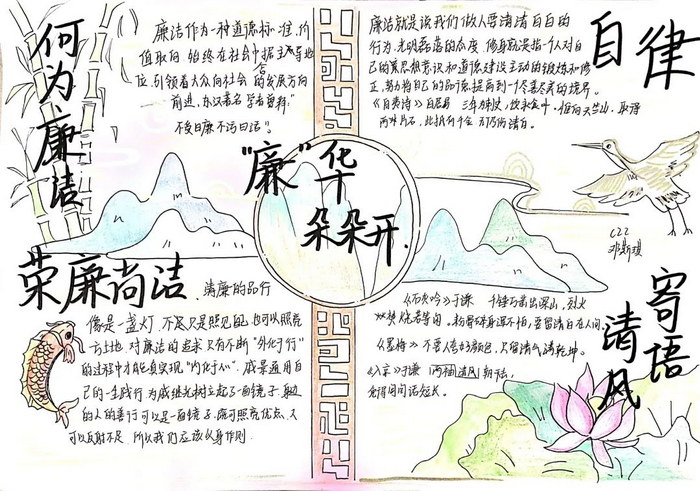 何为廉洁
廉洁作为一种道德标准、价
值取向,始终在社会中占据主导地
位,引领着大众向社会的发展方向
前进,东汉著名学者
不受曰廉不污曰洁”。
廉洁就是说我们做人要清清白白的
行为,光明磊落的态度,修身就是指一个人对自
己的思想意识和道德建设主动的锻炼和修
正,努力将自己的品德提高到一个尽善尽美的境界。
白居易 三年为刺史,饮水食叶,惟向天竺山,取得
两片石,此抵有千金,无乃伤清白。
自律
“廉”华
朵朵开.
C22
荣廉尚洁
清廉的品行
像是一盏灯,不只是照见自己,也可以照亮
一方土地,对廉洁的追求只有不断“外化于行”
的过程中才能真实现“内化于心”
己的一生践行为成继光树立起了一面镜子,身边
的人的善行可以是一面镜子,既可照亮优点,又
可以反射不足,所以我们应该以身作则.
《石灰吟》于谦 千锤万凿出深山,烈火
焚烧若等闲,粉骨碎身浑不怕,要留清白在人间。
《墨梅》不要人夸好颜色,只留清气满乾坤。
《入京》于谦 两袖清风朝天去,
免得闾阎话短长。
寄语清风